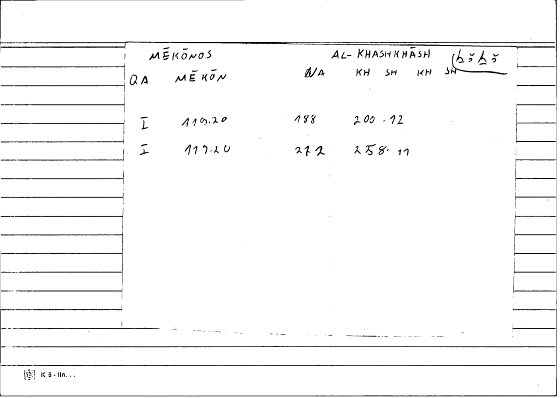 MĒKŌNOS AL-KHASHKHĀSH ḫšḫš
QA MĒKŌN NA KH SH KH SH
I 119.20 188 200.12
I 119.20 272 258.11
K 5 - lin...